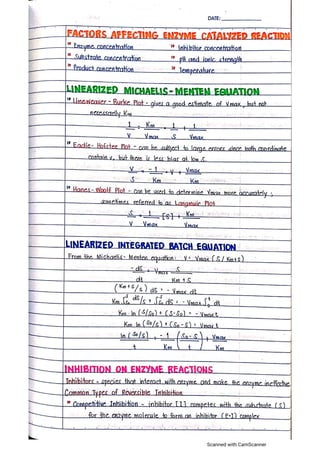 DATE:
FACTORS AFFECTING ENZYME CATALYZED REACTION
* Enzyme concentration * Inhibitor concentration
* Substrate concentration * pH and ionic strength
* Product concentration * Temperature
LINEARIZED MICHAELIS-MENTEN EQUATION
* Lineweaver - Burke Plot - gives a good estimate of Vmax, but not
necessarily Km
1/V = Km/Vmax 1/S + 1/Vmax
* Eadie- Hofstee Plot - can be subject to large errors since both coordinate
contain v, but there is less bias at low S.
V/S = -1/Km V + Vmax/Km
* Hanes- Woolf Plot - can be used to determine Vmax more accurately ;
sometimes referred to as Langmuir Plot
S/V = 1/Vmax [S] + Km/Vmax
LINEARIZED INTEGRATED BATCH EQUATION
From the Michaelis- Menten equation: V = Vmax (S / Km+S)
-dS/dt = Vmax S/Km + S
(Km+S/S) dS = - Vmax dt
Km ∫ dS/S + ∫ dS = - Vmax ∫ dt
Km ln (S/So) + (S-So) = - Vmax t
Km ln (So/S) + (So-S) = Vmax t
ln (So/S)/t = -1/Km (So-S/t) + Vmax/Km
INHIBITION ON ENZYME REACTIONS
Inhibitors - species that interact with enzyme and make the enzyme ineffective
Common Types of Reversible Inhibition
* Competitive Inhibition - inhibitor [I] competes with the substrate (S)
for the enzyme molecule to form an inhibitor (E-I) complex
Scanned with CamScanner